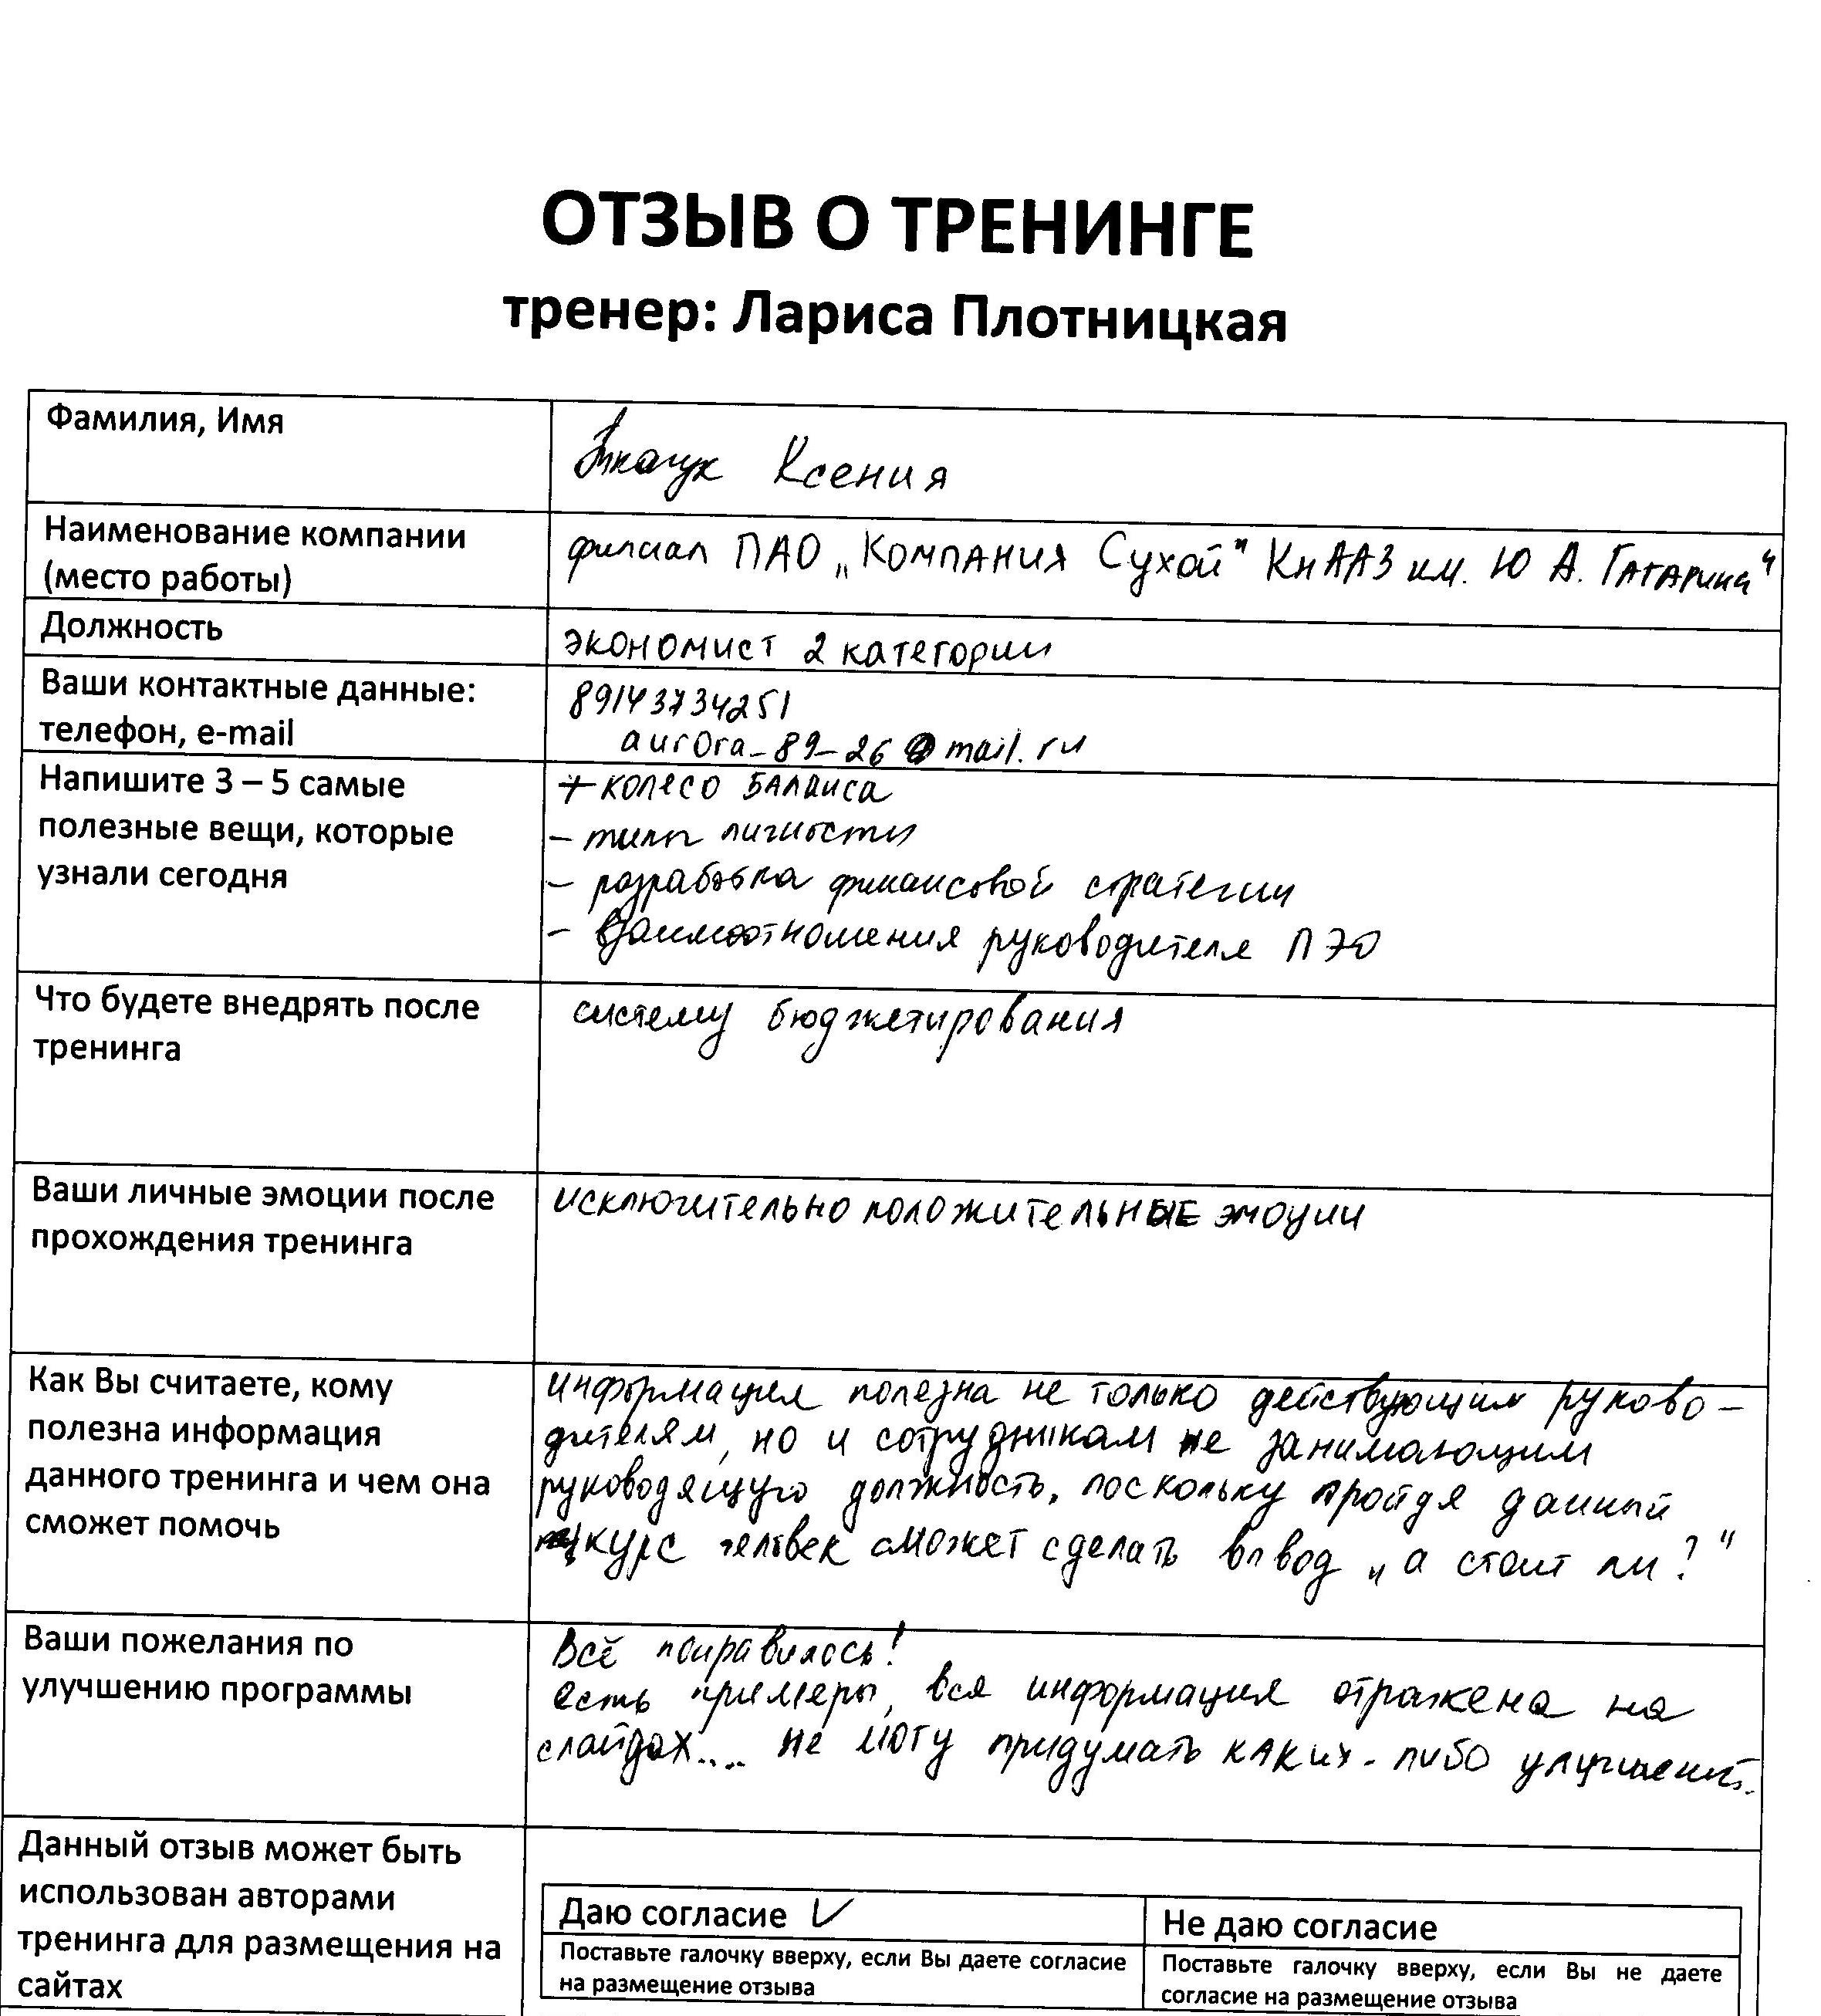 ОТЗЫВ О ТРЕНИНГЕ
тренер: Лариса Плотницкая
Фамилия, Имя
Ткачук Ксения
Наименование компании
(место работы)
филиал ПАО „Компания Сухой" КнААЗ им. Ю А. Гагарина"
Должность
экономист 2 категории
Ваши контактные данные:
телефон, e-mail
89143734251
aurora-89-26@mail.ru
Напишите 3 – 5 самые
полезные вещи, которые
узнали сегодня
+ колесо баланса
- типы личности
- разработка финансовой стратегии
- взаимоотношения руководителя ПЭО
Что будете внедрять после
тренинга
систему бюджетирования
Ваши личные эмоции после
прохождения тренинга
исключительно положительные эмоции
Как Вы считаете, кому
полезна информация
данного тренинга и чем она
сможет помочь
информация полезна не только действующим руково-
дителям, но и сотрудникам не занимающим
руководящую должность, поскольку пройдя данный
курс человек сможет сделать вывод „а стоит ли?"
Ваши пожелания по
улучшению программы
Всё понравилось!
есть примеры, вся информация отражена на
слайдах.... не могу придумать каких-либо улучшений.
Данный отзыв может быть
использован авторами
тренинга для размещения на
сайтах
Даю согласие ✓
Поставьте галочку вверху, если Вы даете согласие
на размещение отзыва
Не даю согласие
Поставьте галочку вверху, если Вы не даете
согласие на размещение отзыва